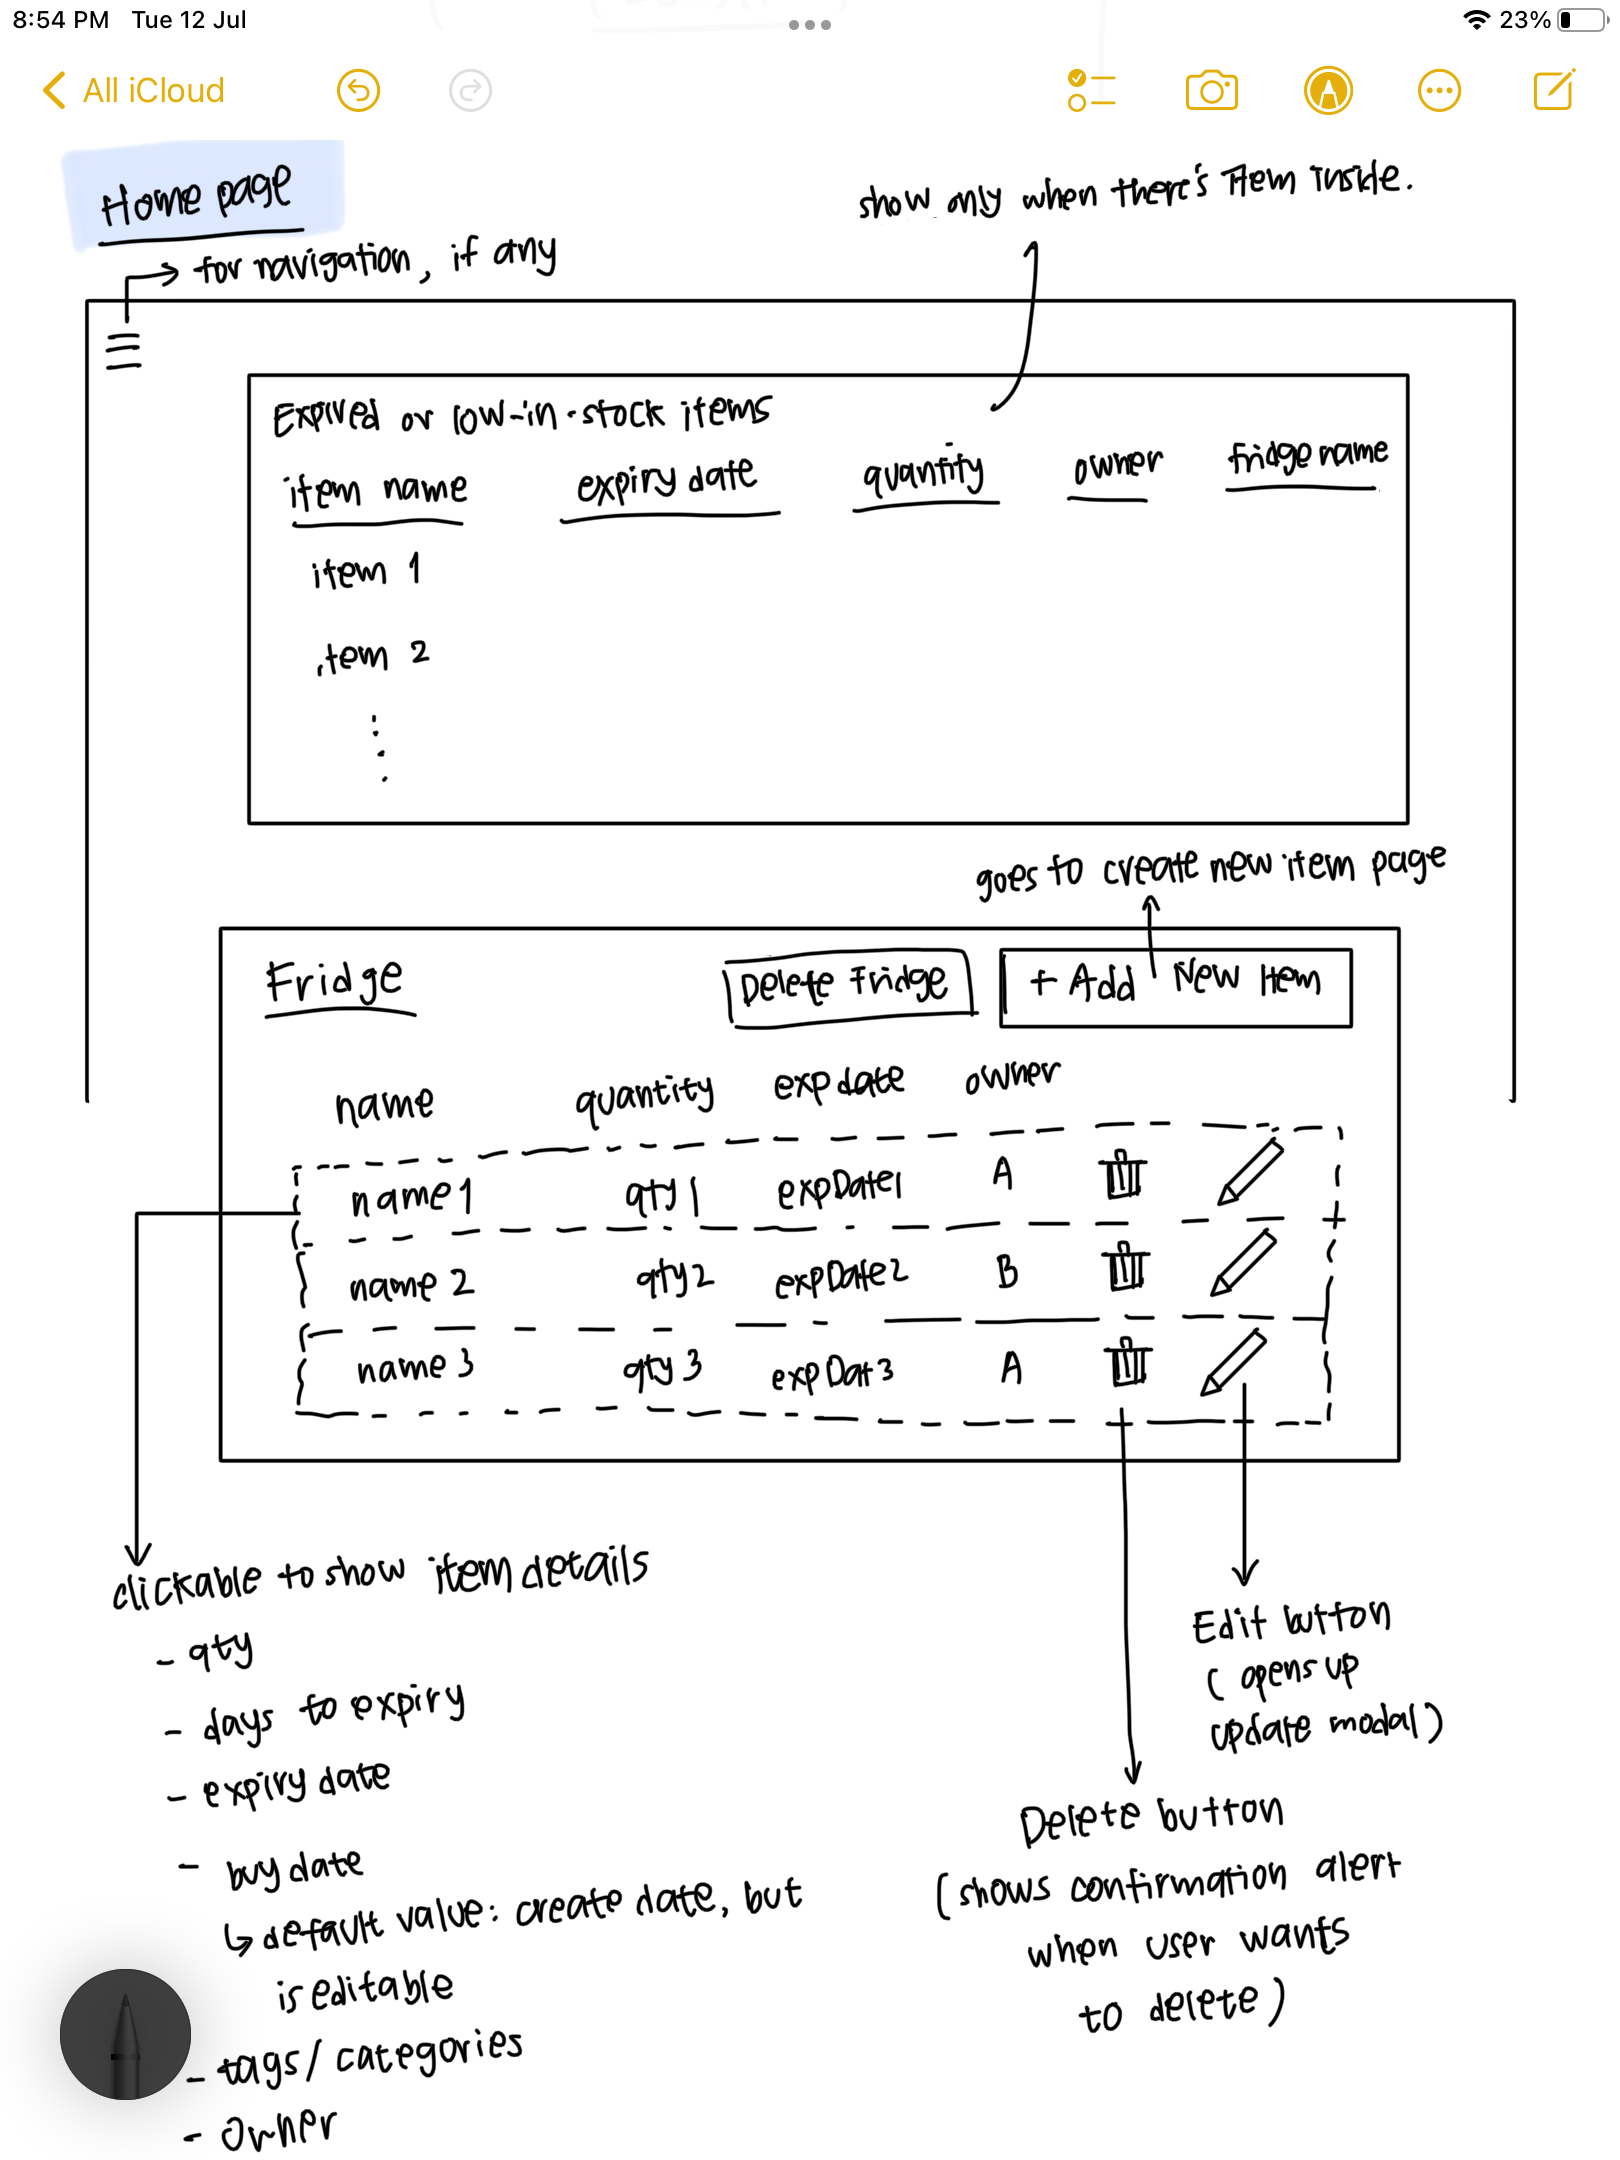 8:54 PM Tue 12 Jul 23%
All iCloud
Home page
show only when there's item inside.
for navigation, if any
Expired or low-in-stock items
item name expiry date quantity owner fridge name
item 1
item 2
goes to create new item page
Fridge Delete Fridge + Add New Item
name quantity exp date owner
name 1 qty 1 expDate1 A
name 2 qty 2 expDate2 B
name 3 qty 3 expDat3 A
clickable to show item details
- qty
- days to expiry
- expiry date
- buy date
↳ default value: create date, but
is editable
- tags/categories
- owner
Edit button
(opens up
update modal)
Delete button
(shows confirmation alert
when user wants
to delete)